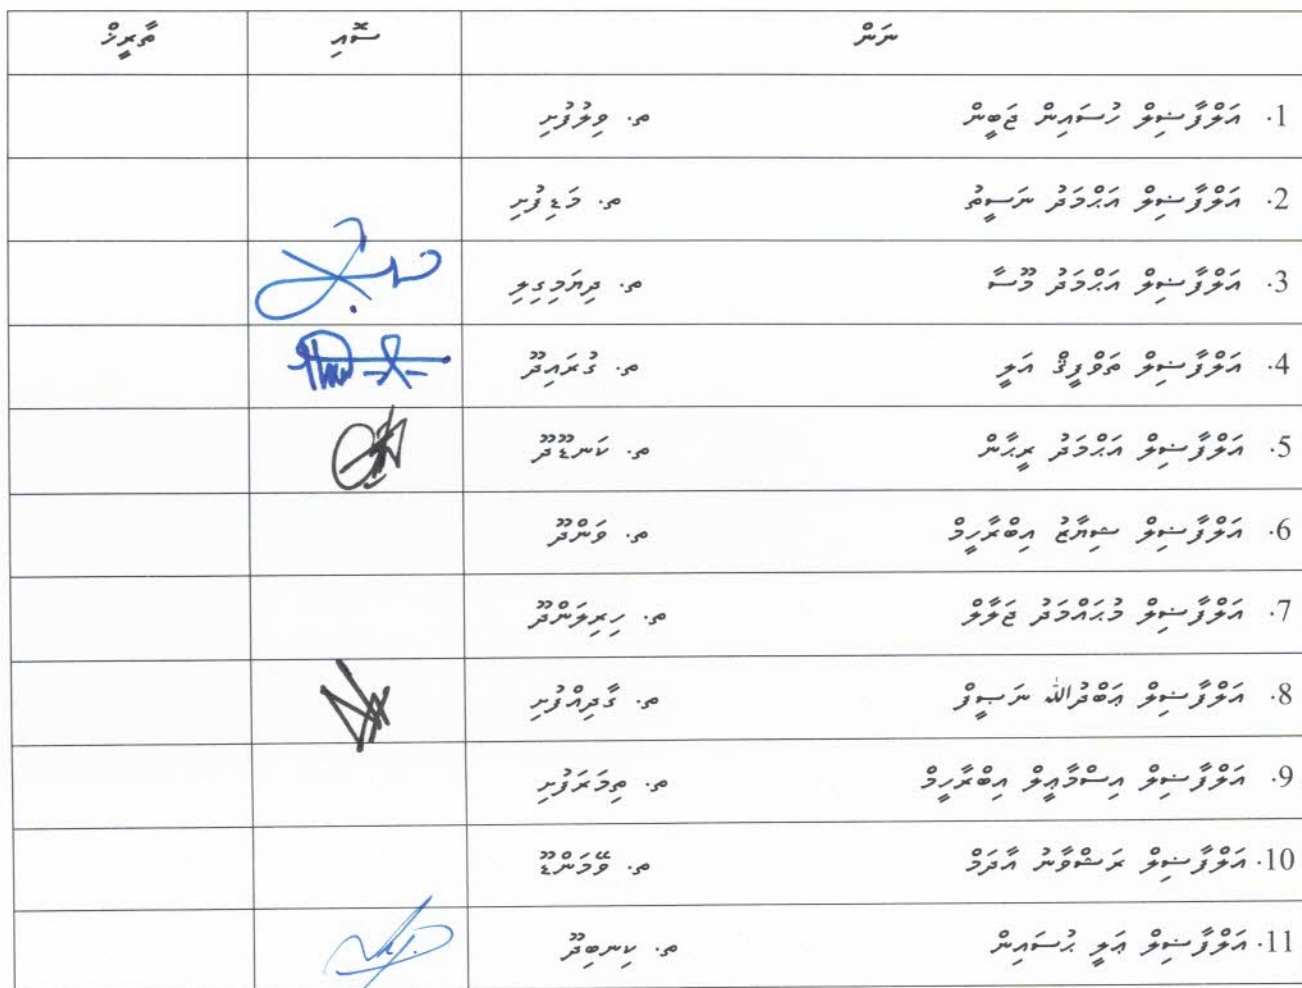 ނަން ސޮއި ތާރީޚް
1. އަލްފާޟިލް ހުސައިން ޖަބީން ތ. ވިލުފުށި
2. އަލްފާޟިލް އަޙްމަދު ނަސީތު ތ. މަޑިފުށި
3. އަލްފާޟިލް އަޙްމަދު މޫސާ ތ. ދިޔަމިގިލި
4. އަލްފާޟިލް ތަވްފީޤް އަލީ ތ. ގުރައިދޫ
5. އަލްފާޟިލް އަޙްމަދު ރިޙާން ތ. ކަނޑޫދޫ
6. އަލްފާޟިލް ޝިޔާޒު އިބްރާހީމް ތ. ވަންދޫ
7. އަލްފާޟިލް މުޙައްމަދު ޖަލާލް ތ. ހިރިލަންދޫ
8. އަލްފާޟިލް ޢަބްދުﷲ ނަޞީފް ތ. ގާދިއްފުށި
9. އަލްފާޟިލް އިސްމާޢީލް އިބްރާހީމް ތ. ތިމަރަފުށި
10. އަލްފާޟިލް ރަޝްވާނު އާދަމް ތ. ވޭމަންޑޫ
11. އަލްފާޟިލް ޢަލީ ޙުސައިން ތ. ކިނބިދޫ